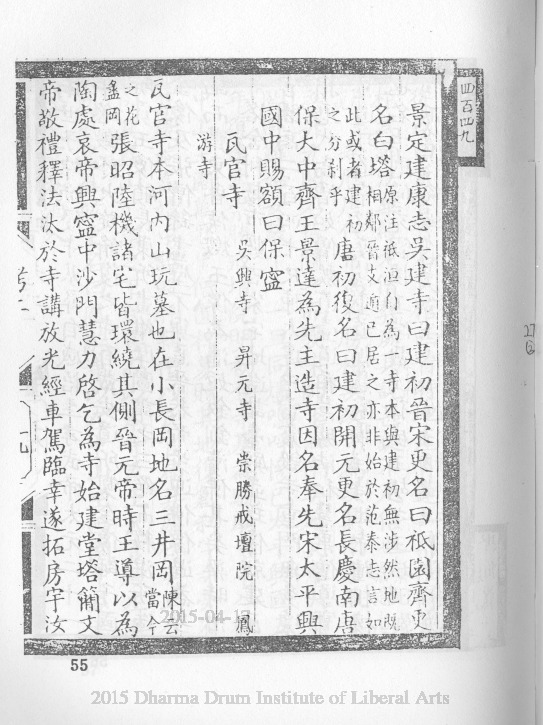 四百四九
景定建康志吳建寺曰建初晉宋更名曰祗園齊更
名白塔原注祗洹自為一寺本與建初無涉然地既
相鄰晉支遁已居之亦非始於范泰志言如
此或者建初
之分剎乎唐初復名曰建初開元更名長慶南唐
保大中齊王景達為先主造寺因名奉先宋太平興
國中賜額曰保寧
瓦官寺 吳興寺 昇元寺 崇勝戒壇院 鳳
游寺
瓦官寺本河內山玩墓也在小長岡地名三井岡陳云
當今
之花
盝岡張昭陸機諸宅皆環繞其側晉元帝時王導以為
陶處哀帝興寧中沙門慧力啓乞為寺始建堂塔簡文
帝敬禮釋法汰於寺講放光經車駕臨幸遂拓房宇汝
55
2015-04-17
2015 Dharma Drum Institute of Liberal Arts